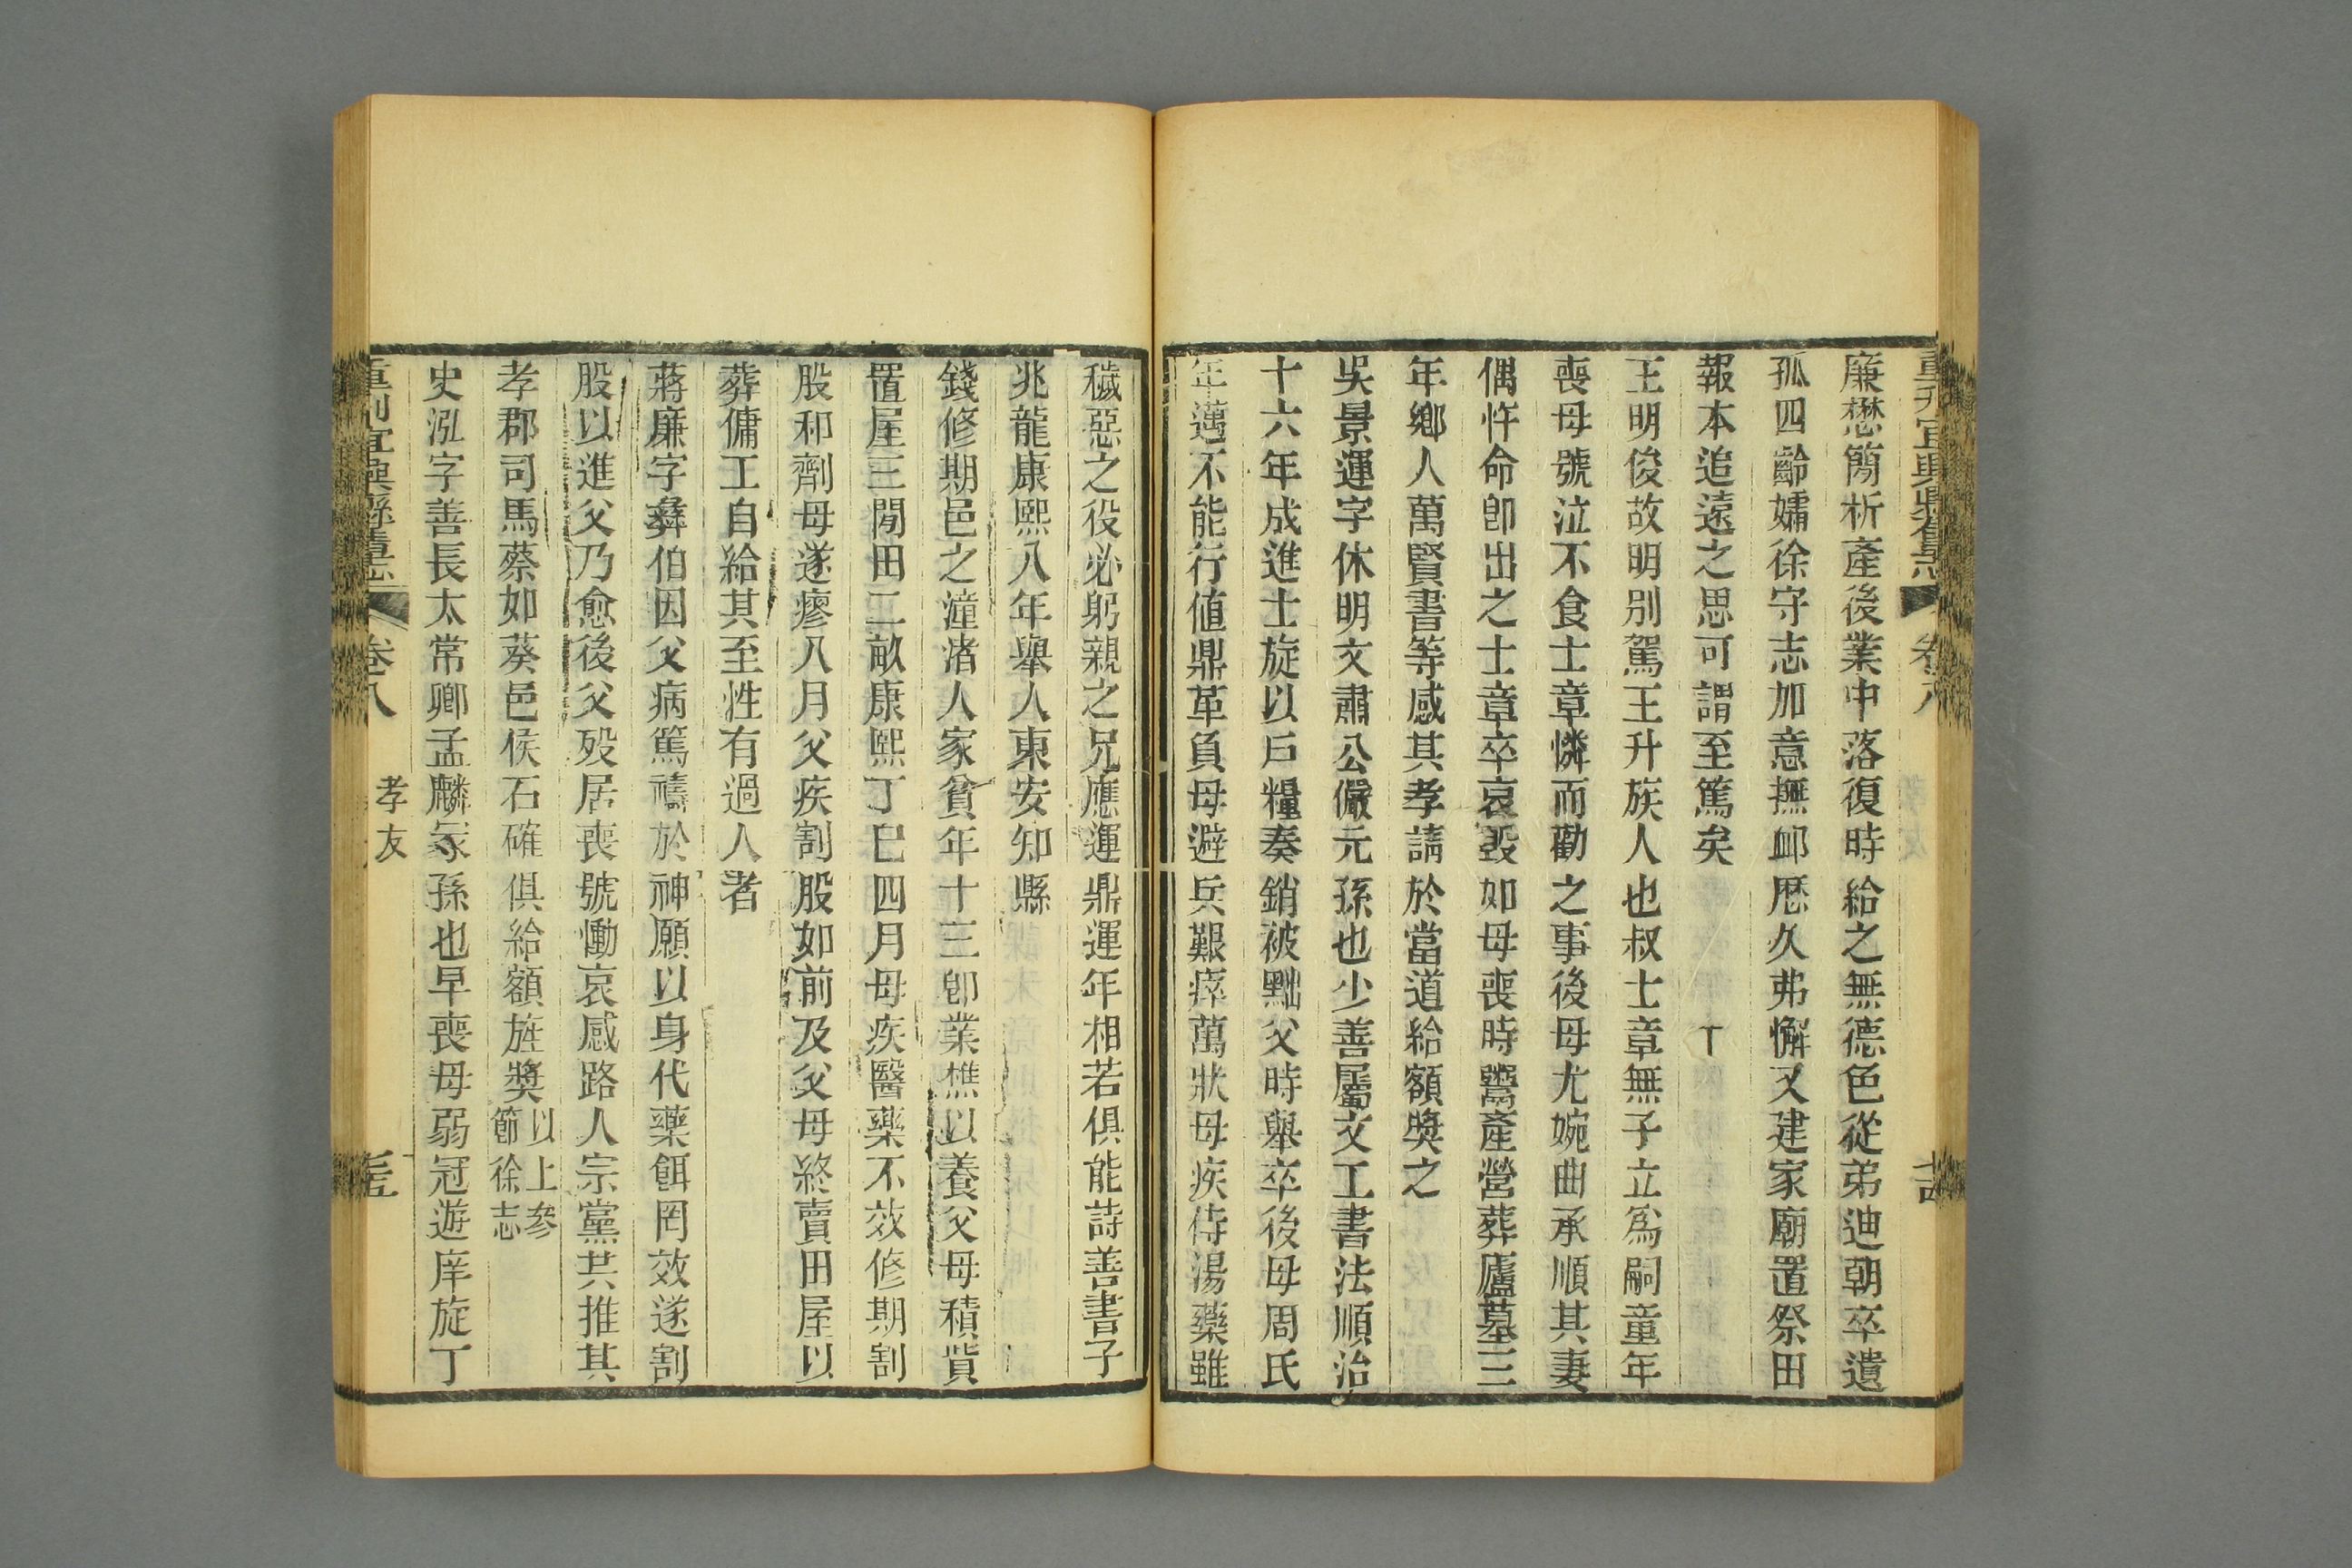 重刊宜興縣舊志 卷八
廉懋簡析產後業中落復時給之無德色從弟迪朝卒遺
孤四齡孀徐守志加意撫卹歷久弗懈又建家廟置祭田
報本追遠之思可謂至篤矣
王明俊故明別駕王升族人也叔士章無子立爲嗣童年
喪母號泣不食士章憐而勸之事後母尤婉曲承順其妻
偶忤命卽出之士章卒哀毀如母喪時鬻產營葬廬墓三
年鄉人萬賢書等感其孝請於當道給額獎之
吳景運字休明文肅公儼元孫也少善屬文工書法順治
十六年成進士旋以戶糧奏銷被黜父時舉卒後母周氏
年邁不能行値鼎革負母避兵艱瘁萬狀母疾侍湯藥雖
穢惡之役必躬親之兄應運鼎運年相若俱能詩善書子
兆龍康熙八年舉人東安知縣
錢修期邑之潼渚人家貧年十三卽業樵以養父母積貲
置屋三間田二畝康熙丁巳四月母疾醫藥不效修期割
股和劑母遂瘳八月父疾割股如前及父母終賣田屋以
葬傭工自給其至性有過人者
蔣廉字彝伯因父病篤禱於神願以身代藥餌罔效遂割
股以進父乃愈後父歿居喪號慟哀感路人宗黨共推其
孝郡司馬蔡如葵邑侯石確俱給額旌獎以上參節徐志
史泓字善長太常卿孟麟冢孫也早喪母弱冠遊庠旋丁
重刊宜興縣舊志 卷八 孝友